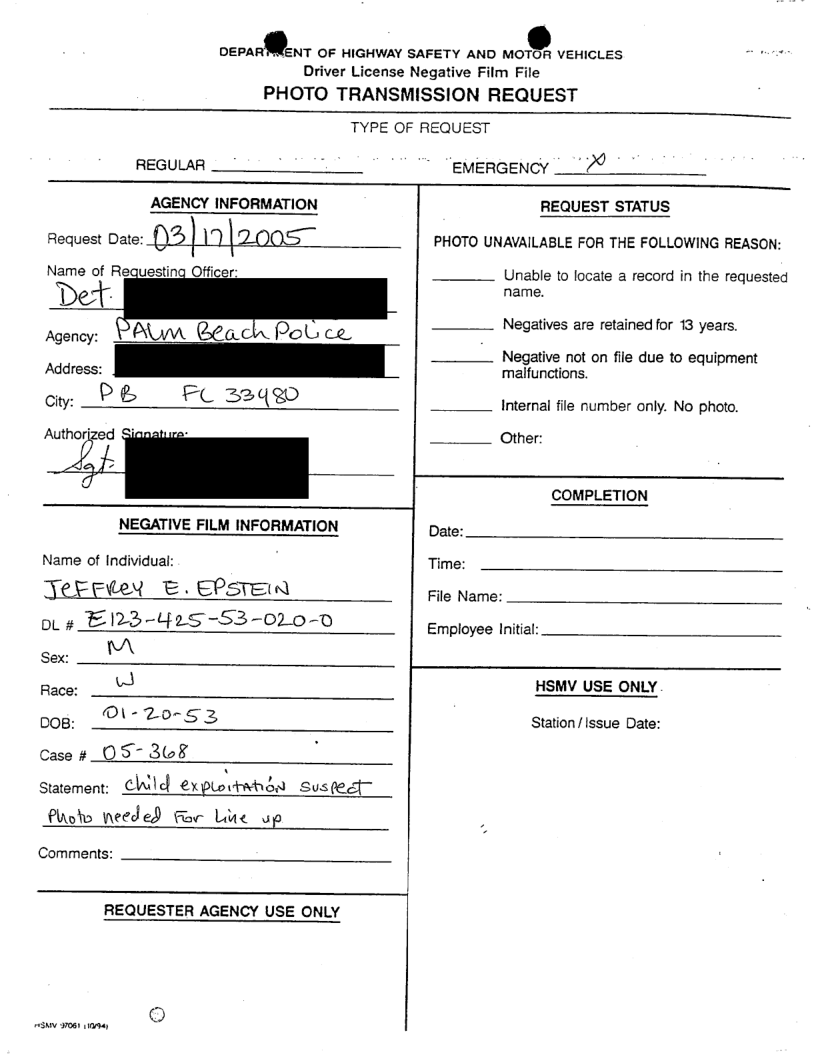 DEPARTMENT OF HIGHWAY SAFETY AND MOTOR VEHICLES
Driver License Negative Film File
PHOTO TRANSMISSION REQUEST
TYPE OF REQUEST
REGULAR
EMERGENCY X
AGENCY INFORMATION
Request Date: 03/17/2005
Name of Requesting Officer:
Det.
Agency: PALM Beach Police
Address:
City: PB FL 33480
Authorized Signature:
Sgt.
NEGATIVE FILM INFORMATION
Name of Individual:
JEFFREY E. EPSTEIN
DL # E123-425-53-020-0
Sex: M
Race: W
DOB: 01-20-53
Case # 05-368
Statement: Child exploitation suspect
Photo needed For Line up
Comments:
REQUESTER AGENCY USE ONLY
HSMV 97061 (10/94)
REQUEST STATUS
PHOTO UNAVAILABLE FOR THE FOLLOWING REASON:
Unable to locate a record in the requested
name.
Negatives are retained for 13 years.
Negative not on file due to equipment
malfunctions.
Internal file number only. No photo.
Other:
COMPLETION
Date:
Time:
File Name:
Employee Initial:
HSMV USE ONLY
Station / Issue Date: